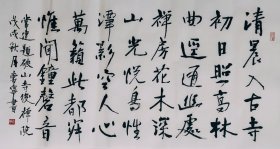 清晨入古寺
初日照高林
曲迳通幽處
禅房花木深
山光悦鳥性
潭影空人心
萬籟此都寂
惟聞鐘磬音
常建題破山寺後禅院
戊戌秋月書